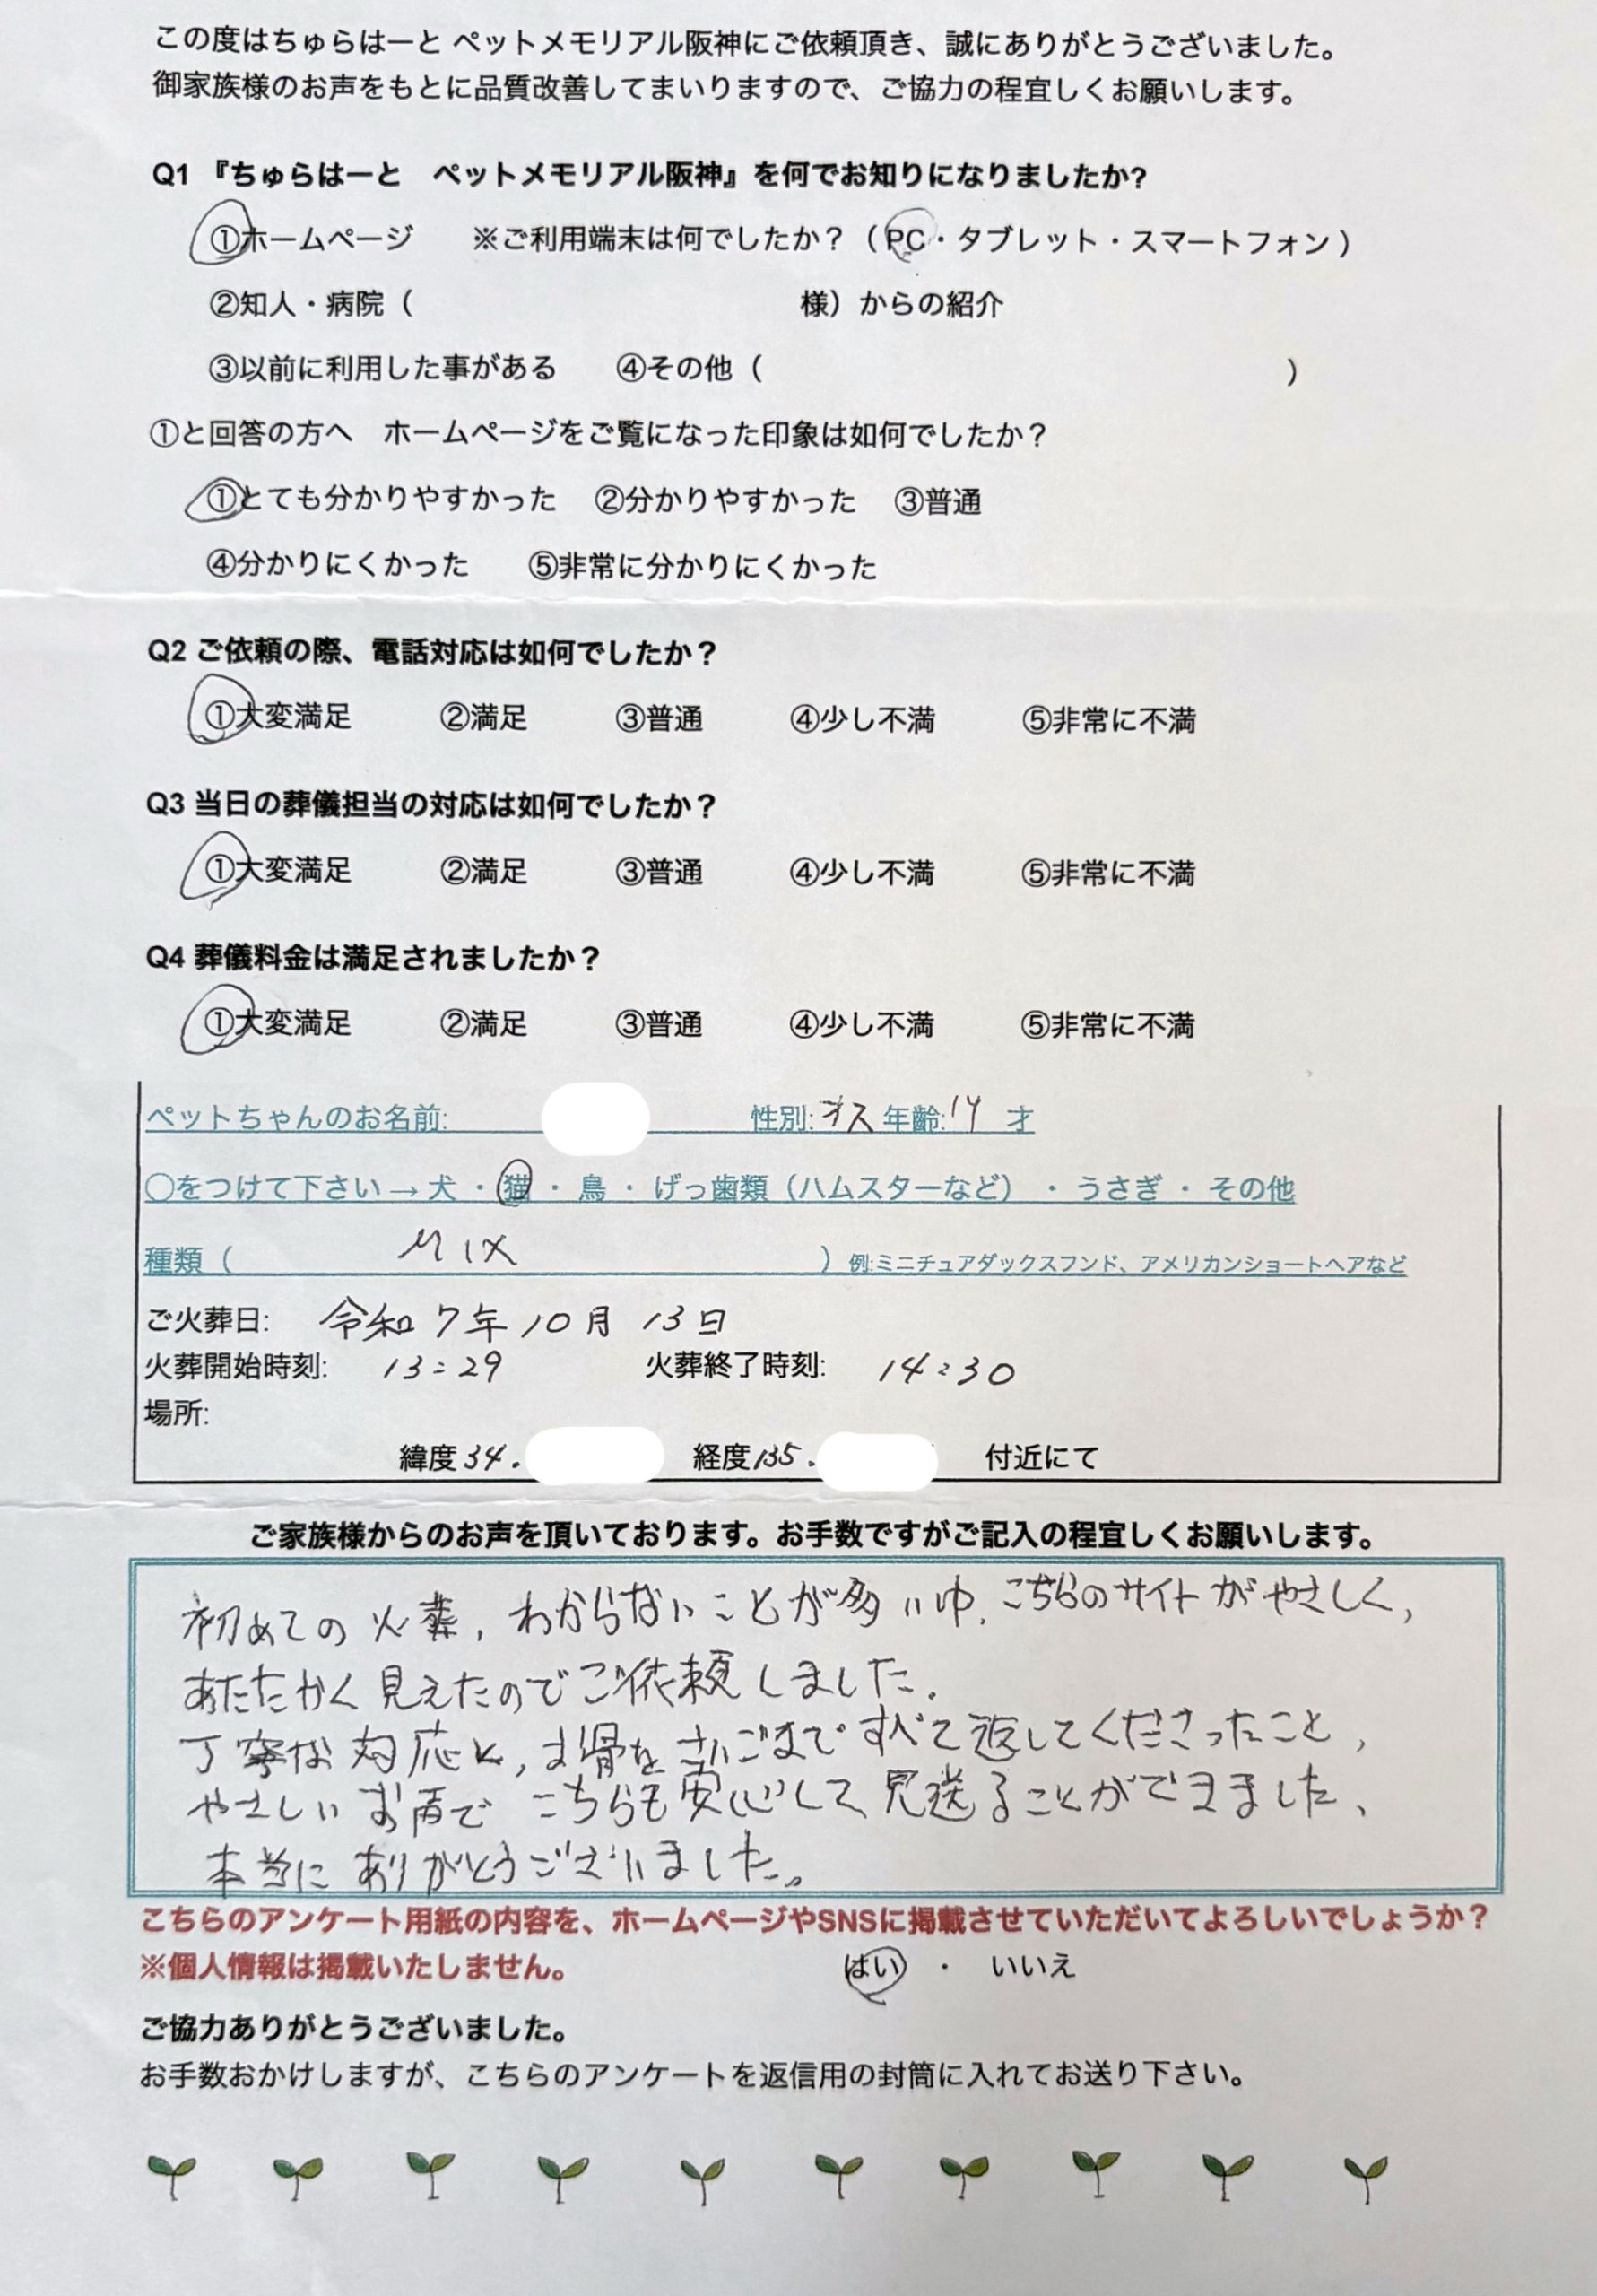 この度はちゅらはーと ペットメモリアル阪神にご依頼頂き、誠にありがとうございました。
御家族様のお声をもとに品質改善してまいりますので、ご協力の程宜しくお願いします。
Q1 『ちゅらはーと　ペットメモリアル阪神』を何でお知りになりましたか?
①ホームページ　※ご利用端末は何でしたか？（PC・タブレット・スマートフォン）
②知人・病院（　様）からの紹介
③以前に利用した事がある　④その他（　）
①と回答の方へ　ホームページをご覧になった印象は如何でしたか？
①とても分かりやすかった　②分かりやすかった　③普通
④分かりにくかった　⑤非常に分かりにくかった
Q2 ご依頼の際、電話対応は如何でしたか？
①大変満足　②満足　③普通　④少し不満　⑤非常に不満
Q3 当日の葬儀担当の対応は如何でしたか？
①大変満足　②満足　③普通　④少し不満　⑤非常に不満
Q4 葬儀料金は満足されましたか？
①大変満足　②満足　③普通　④少し不満　⑤非常に不満
ペットちゃんのお名前:　性別:オス 年齢:14 才
〇をつけて下さい→ 犬 ・ 猫 ・ 鳥 ・ げっ歯類（ハムスターなど） ・ うさぎ ・ その他
種類（　MIX　）例:ミニチュアダックスフンド、アメリカンショートヘアなど
ご火葬日:　令和 7年 10月 13日
火葬開始時刻:　13:29　火葬終了時刻:　14:30
場所:
緯度34.　経度135.　付近にて
ご家族様からのお声を頂いております。お手数ですがご記入の程宜しくお願いします。
初めての火葬、わからないことが多い中、こちらのサイトがやさしく、
あたたかく見えたのでご依頼しました。
丁寧な対応と、お骨をさいごまですべて返してくださったこと、
やさしいお声で こちらも安心して、見送ることができました、
本当に ありがとうございました。
こちらのアンケート用紙の内容を、ホームページやSNSに掲載させていただいてよろしいでしょうか？
※個人情報は掲載いたしません。　はい　・　いいえ
ご協力ありがとうございました。
お手数おかけしますが、こちらのアンケートを返信用の封筒に入れてお送り下さい。